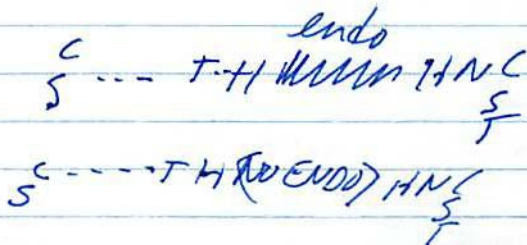 endo
C
S --- T-H HNC
S
T
C
S ----- T H (NO ENDO) HNC
S
T